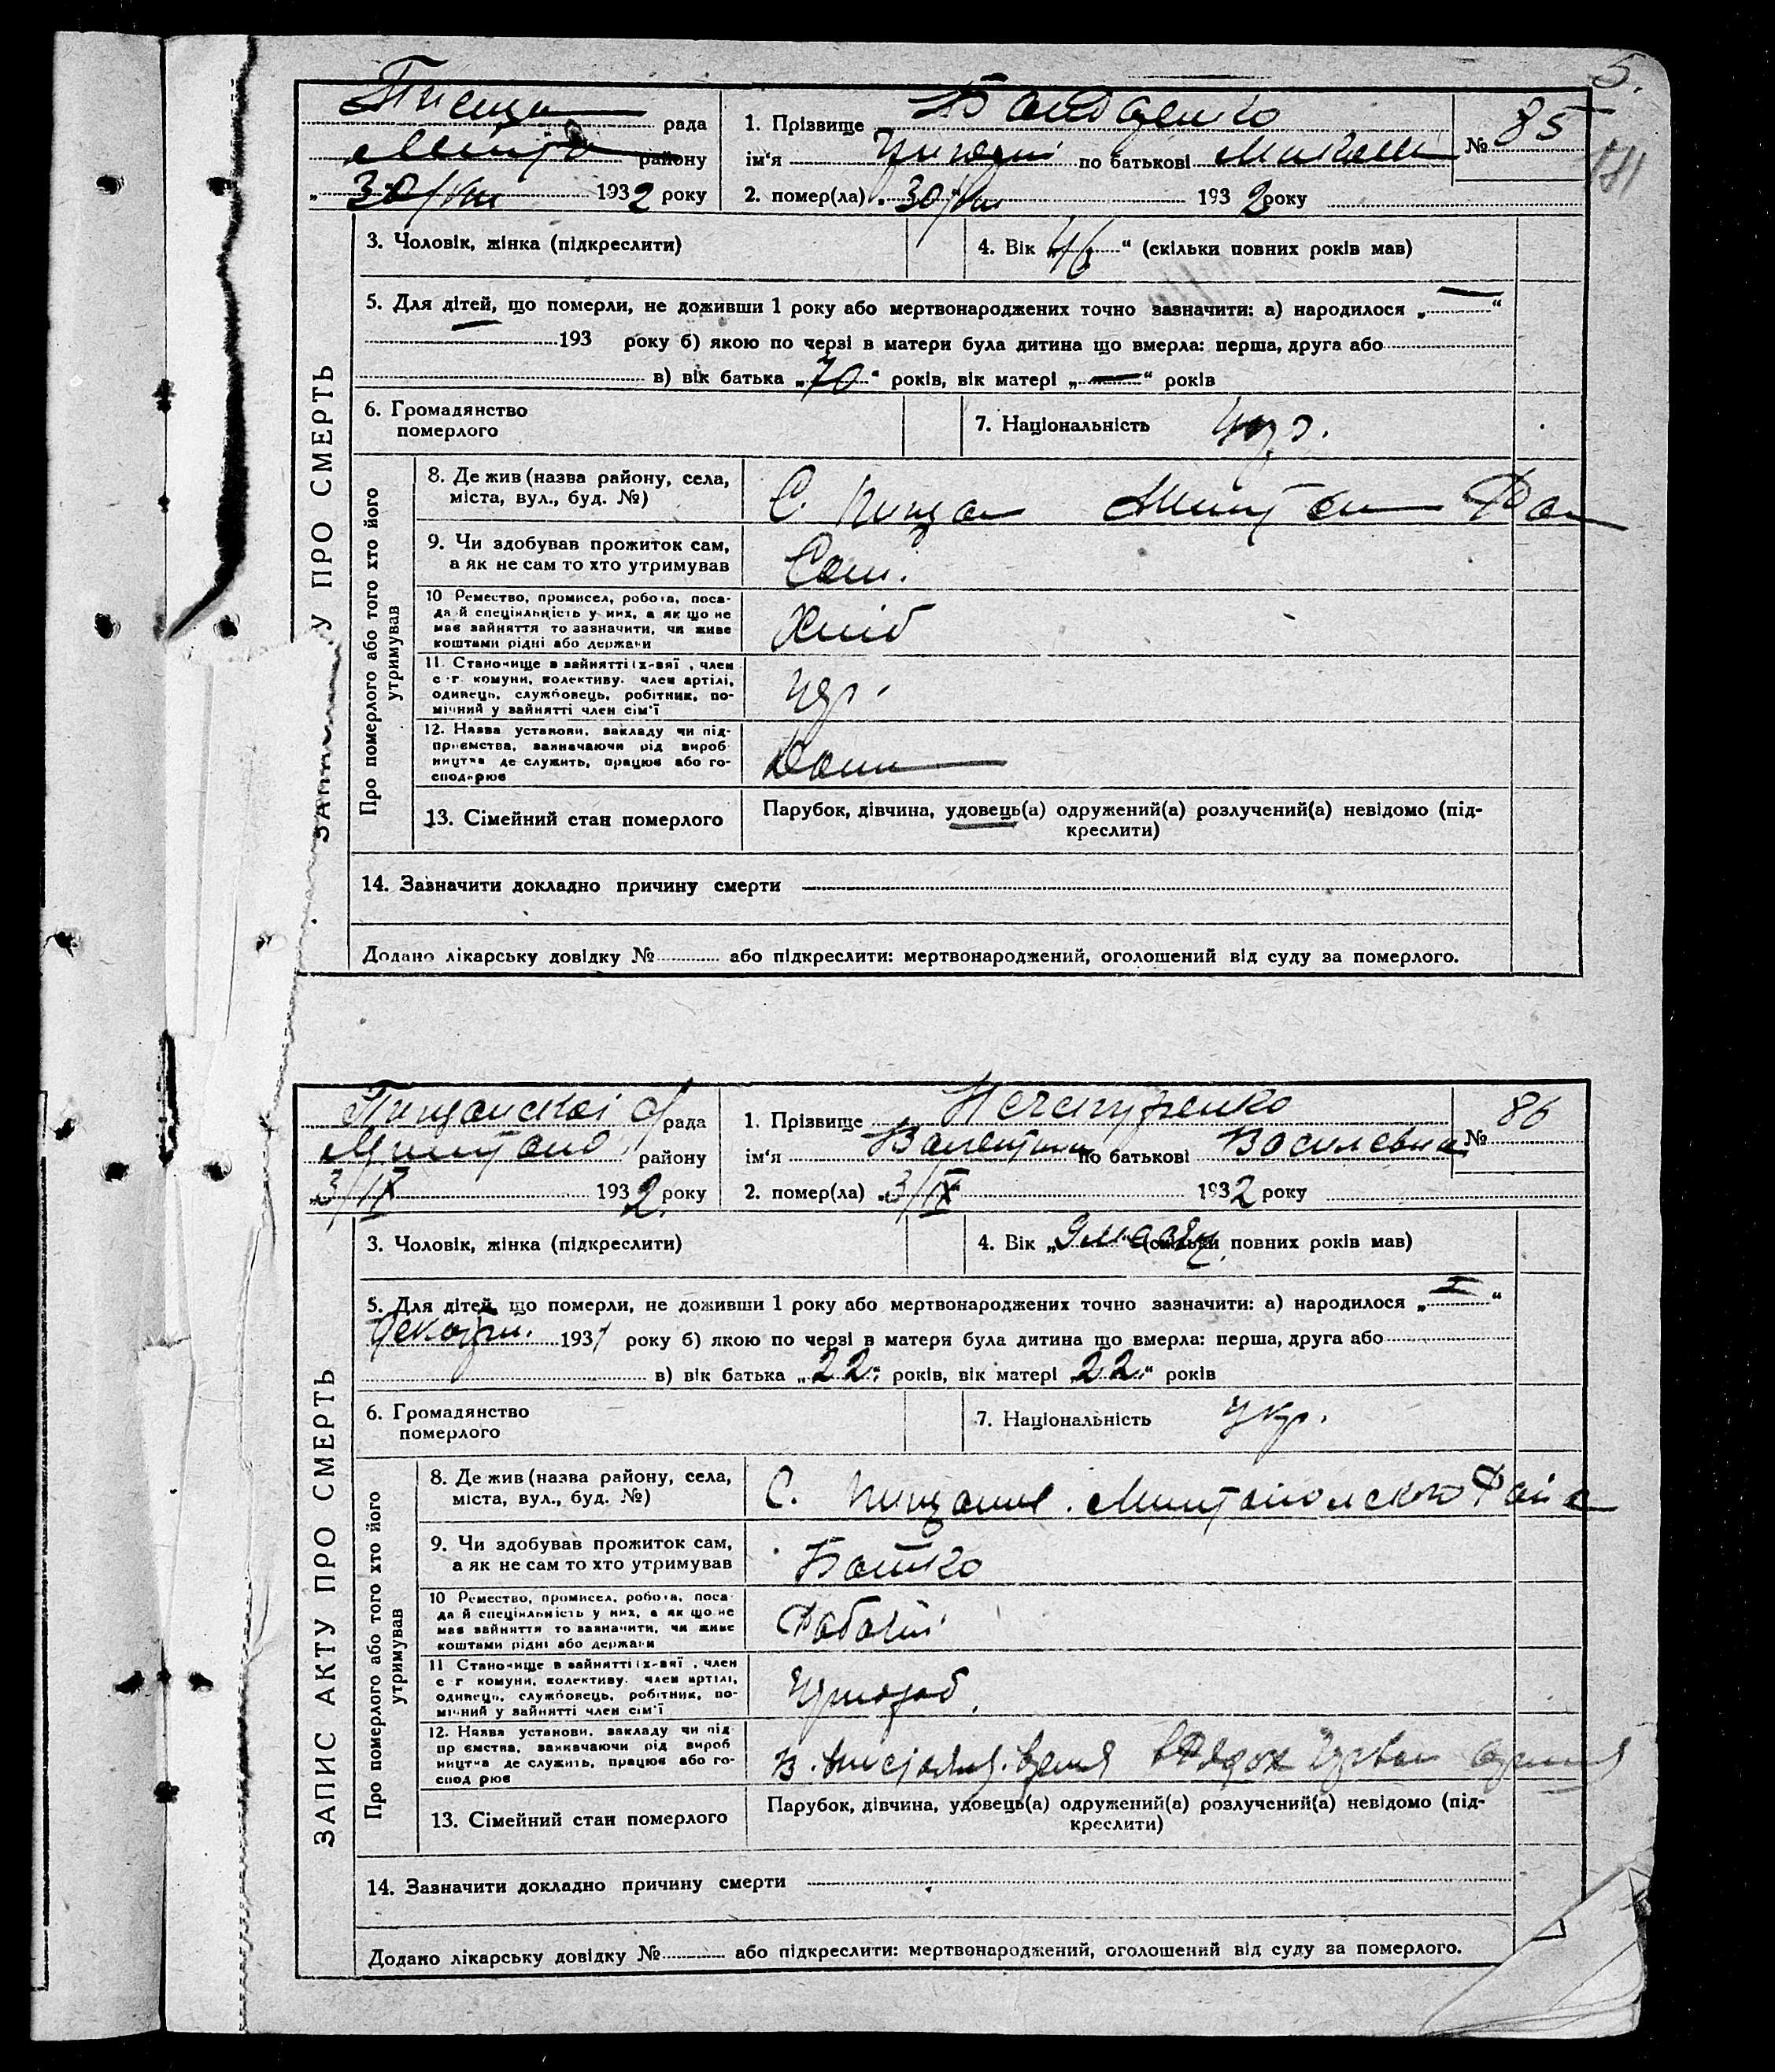 5.
рада
1. Прізвище Бондаренко
№ 85
181
району
ім'я по батькові
„30/VIII 1932 року
2. помер(ла) „30/VIII 1932 року
3. Чоловік, жінка (підкреслити)
4. Вік „ “ (скільки повних років мав)
5. Для дітей, що померли, не доживши 1 року або мертвонароджених точно зазначити: а) народилося „—“
193 року б) якою по черзі в матери була дитина що вмерла: перша, друга або
в) вік батька „70“ років, вік матері „—“ років
6. Громадянство
померлого
7. Національність Укр.
ЗАПИС АКТУ ПРО СМЕРТЬ
Про померлого або того хто його
утримував
8. Де жив (назва району, села,
міста, вул., буд. №)
С.
9. Чи здобував прожиток сам,
а як не сам то хто утримував
Сам.
10 Ремество, промисел, робота, поса-
да й спеціяльність у них, а як що не
має зайняття то зазначити, чи живе
коштами рідні або держави
Хліб
11. Становище в зайнятті їх-вяї , член
с-г. комуни, колективу. член артілі,
одинець, службовець, робітник, по-
мічний у зайнятті член сім'ї
12. Назва установи, закладу чи під-
приємства, зазначаючи рід вироб-
ництва де служить, працює або го-
сподарює
Дома
13. Сімейний стан померлого
Парубок, дівчина, удовець(а) одружений(а) розлучений(а) невідомо (під-
креслити)
14. Зазначити докладно причину смерти
Додано лікарську довідку № або підкреслити: мертвонароджений, оголошений від суду за померлого.
Пищанскої с/рада
1. Прізвище Нечепуренко
№ 86
району
ім'я Валентина по батькові Василевна
„3/IX 1932 року
2. помер(ла) „3/IX 1932 року
3. Чоловік, жінка (підкреслити)
4. Вік „9 “ (скільки повних років мав)
5. Для дітей, що померли, не доживши 1 року або мертвонароджених точно зазначити: а) народилося „I“
декабри. 1931 року б) якою по черзі в матери була дитина що вмерла: перша, друга або
в) вік батька „22“ років, вік матері „22“ років
6. Громадянство
померлого
7. Національність Укр.
ЗАПИС АКТУ ПРО СМЕРТЬ
Про померлого або того хто його
утримував
8. Де жив (назва району, села,
міста, вул., буд. №)
С. Пищание. Мелитопольского Район
9. Чи здобував прожиток сам,
а як не сам то хто утримував
Батько
10 Ремество, промисел, робота, поса-
да й спеціяльність у них, а як що не
має зайняття то зазначити, чи живе
коштами рідні або держави
Рабочий
11 Становище в зайнятті їх-вяї , член
с г комуни, колективу. член артілі,
одинець, службовець, робітник, по-
мічний у зайнятті член сім'ї
12. Назва установи, закладу чи під
пр ємства, зазначаючи рід вироб
ництва де служить, працює або го-
спод рює
В. время в Рядах
13. Сімейний стан померлого
Парубок, дівчина, удовець(а) одружений(а) розлучений(а) невідомо (під-
креслити)
14. Зазначити докладно причину смерти
Додано лікарську довідку № або підкреслити: мертвонароджений, оголошений від суду за померлого.